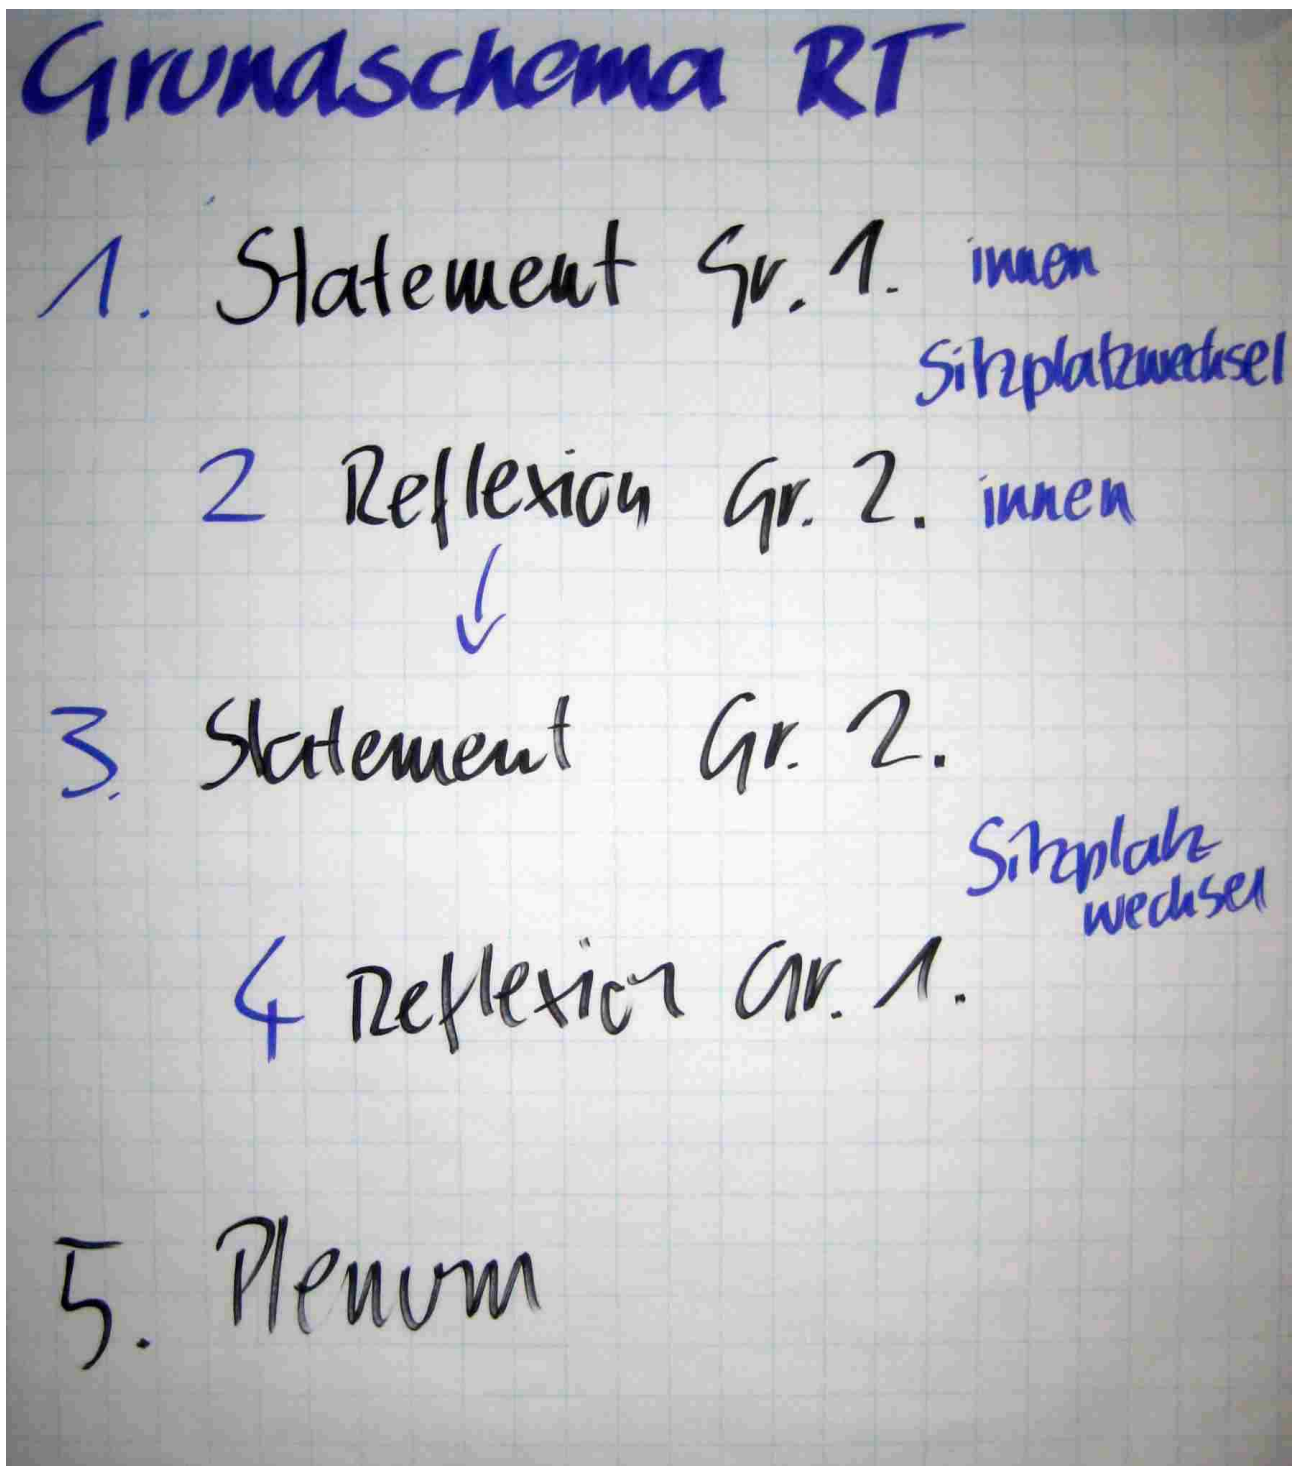 Grundschema RT
1. Statement Gr. 1. innen
Sitzplatzwechsel
2 Reflexion Gr. 2. innen
3. Statement Gr. 2.
Sitzplatz
wechsel
4 Reflexion Gr. 1.
5. Plenum